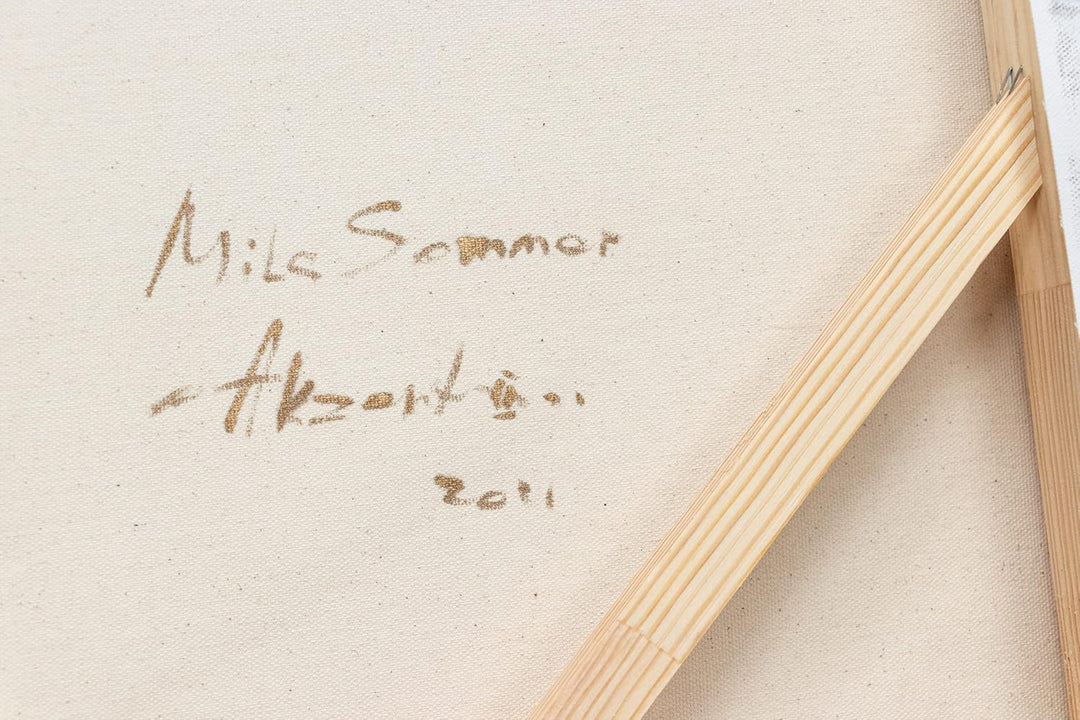 Mila Sommer
-Akzent
2011